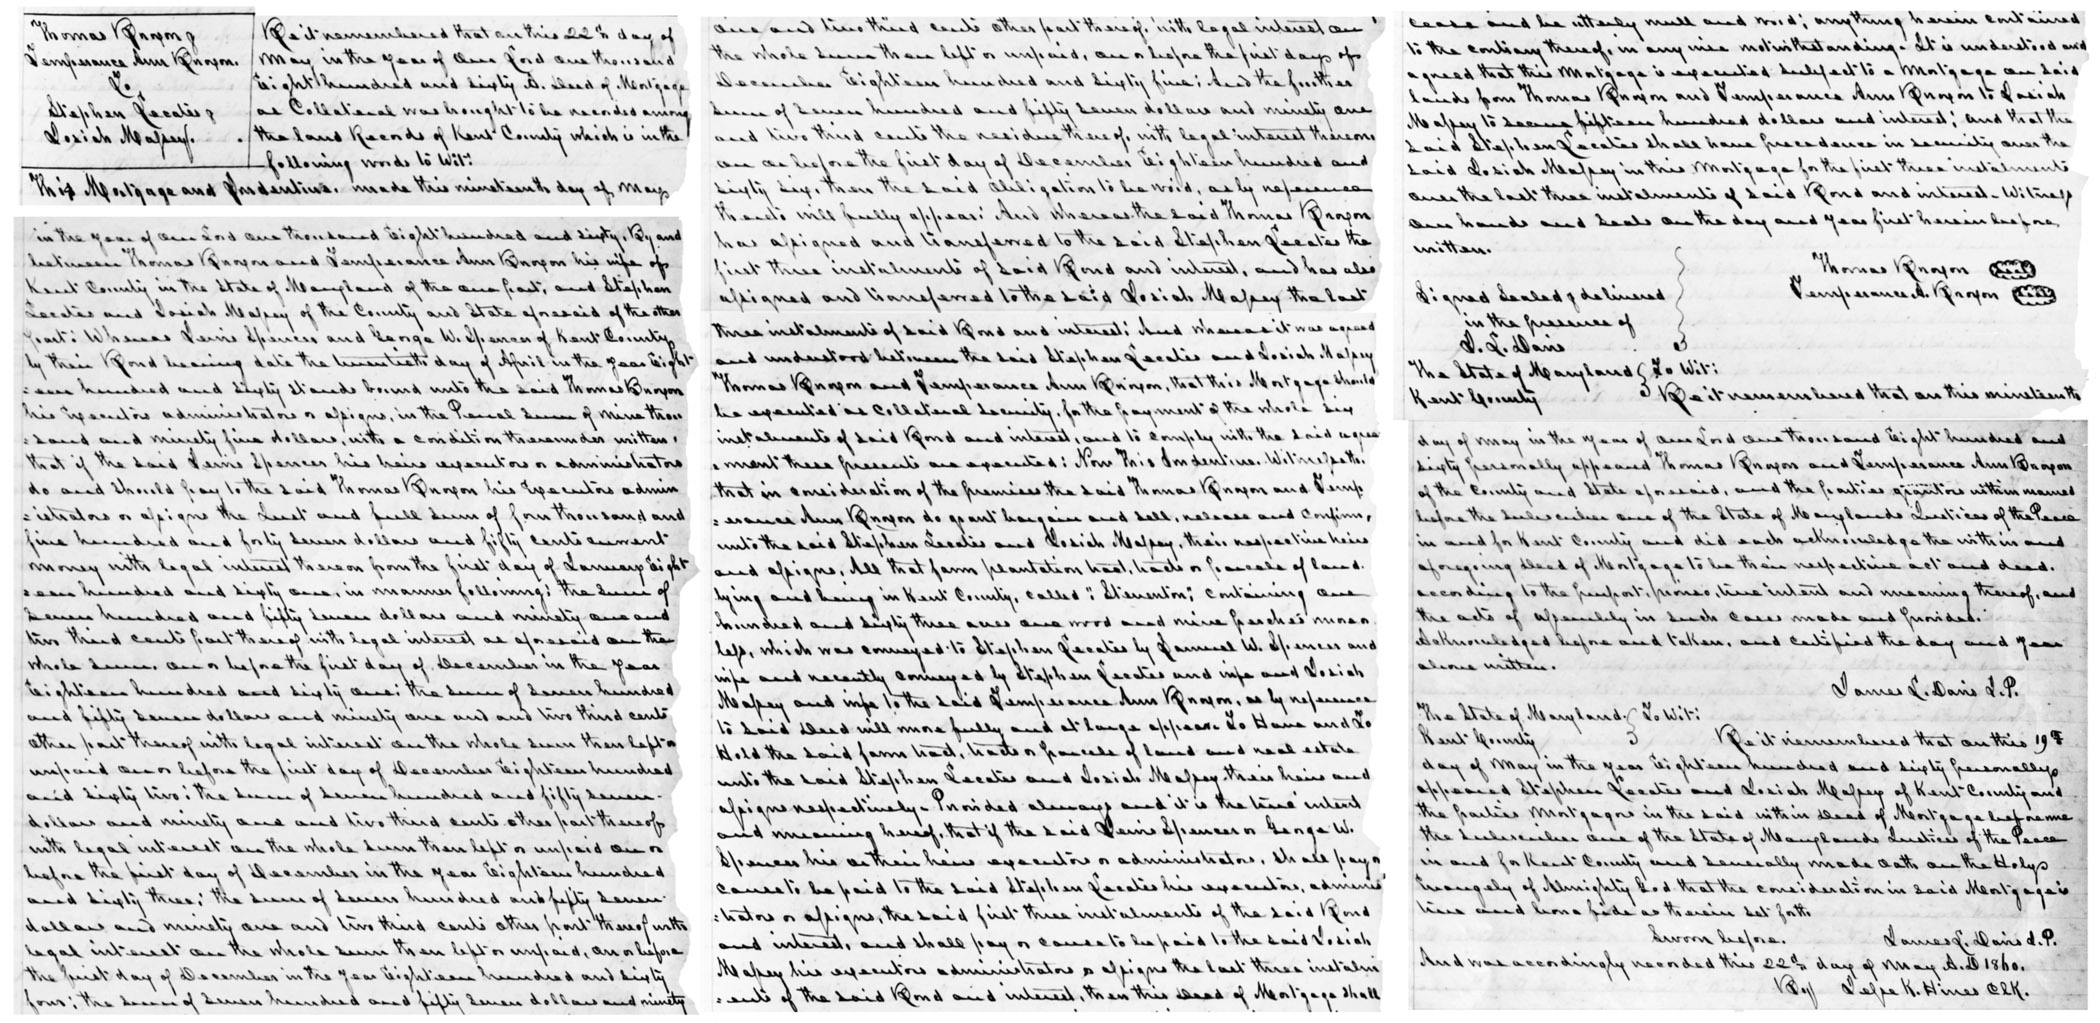 Thomas Broxon &
Temperance Ann Broxon.
To
Stephen Lecates &
Josiah Massey.
Be it remembered that on this 22nd day of
May in the year of Our Lord One thousand
Eight hundred and sixty A Deed of Mortgage
as Collateral was brought to be recorded among
the land Records of Kent County which is in the
following words to Wit:
This Mortgage and Indenture. made this nineteenth day of May
in the year of Our Lord One thousand Eight hundred and sixty, By and
between Thomas Broxon and Temperance Ann Broxon his wife of
Kent County in the State of Maryland of the one part; and Stephen
Lecates and Josiah Massey of the County and State aforesaid of the other
part: Whereas Servis Spencer and George W. Spencer of Kent County
by their Bond bearing date the twentieth day of April in the year Eight
=een hundred and sixty stands bound unto the said Thomas Broxon
his Executors administrators or assigns, in the Penal sum of nine thou
=sand and ninety five dollars, with a condition thereunder written,
that if the said Spencer his heirs executors or administrators
do and should pay to the said Thomas Broxon his Executors admin
=istrators or assigns the Just and full sum of four thousand and
five hundred and forty seven dollars and fifty cents current
money with legal interest thereon from the first day of January Eight
=een hundred and sixty one, in manner following; the sum of
seven hundred and fifty seven dollars and ninety one and
two third cents part thereof with legal interest as aforesaid on the
whole sum. on or before the first day of December in the year
Eighteen hundred and sixty one; the sum of seven hundred
and fifty seven dollars and ninety one and and two third cents
other part thereof with legal interest on the whole sum then left or
unpaid on or before the first day of December Eighteen hundred
and sixty two; the sum of seven hundred and fifty seven
dollars and ninety one and two third cents other part thereof
with legal interest on the whole sum then left or unpaid on or
before the first day of December in the year Eighteen hundred
and sixty three; the sum of seven hundred and fifty seven
dollars and ninety one and two third cents other part thereof with
legal interest on the whole sum then left or unpaid, on or before
the first day of December in the year Eighteen hundred and sixty
four; the sum of seven hundred and fifty seven dollars and ninety
one and two third cents other part thereof, with legal interest on
the whole sum then left or unpaid, on or before the first day of
December Eighteen hundred and sixty five; And the further
sum of seven hundred and fifty seven dollars and ninety one
and two third cents the residue thereof, with legal interest thereon
on or before the first day of December Eighteen hundred and
sixty six, then the said Obligation to be void, as by reference
thereto will fully appear: And whereas the said Thomas Broxon
has assigned and transferred to the said Stephen Lecates the
first three instalments of said Bond and interest, and has also
assigned and transferred to the said Josiah Massey the last
three instalments of said Bond and interest; And whereas it was agreed
and understood between the said Stephen Lecates and Josiah Massey
Thomas Broxon and Temperance Ann Broxon, that this Mortgage should
be executed as collateral security, for the payment of the whole six
instalments of said Bond and interest, and to comply with the said agree
=ment these presents are executed: Now This Indenture. Witnesseth.
that in consideration of the premises the said Thomas Broxon and Temp
=erance Ann Broxon do grant bargain and sell, release and confirm,
unto the said Stephen Lecates and Josiah Massey, their respective heirs
and assigns, All that farm plantation tract, tracts or parcels of land.
lying and being in Kent County, called "Steventon", containing one
hundred and sixty three acres one rood and nine perches more or
less, which was conveyed to Stephen Lecates by Samuel W. Spencer and
wife and recently conveyed by Stephen Lecates and wife and Josiah
Massey and wife to the said Temperance Ann Broxon, as by reference
to said Deed will more fully and at large appear. To Have and To
Hold the said farm tract, tracts or parcels of land and real estate
unto the said Stephen Lecates and Josiah Massey their heirs and
assigns respectively. Provided always and it is the true intent
and meaning hereof, that if the said Spencer or George W.
Spencer his or their heirs executors or administrators, shall pay or
cause to be paid to the said Stephen Lecates his executors, adminis
=trators or assigns, the said first three instalments of the said Bond
and interest, and shall pay or cause to be paid to the said Josiah
Massey his executors administrators or assigns the last three instalm
=ents of the said Bond and interest, then this Deed of Mortgage shall
cease and be utterly null and void; anything herein contained
to the contrary thereof, in any wise notwithstanding. It is understood and
agreed that this Mortgage is executed subject to a Mortgage on said
lands from Thomas Broxon and Temperance Ann Broxon to Josiah
Massey to secure fifteen hundred dollars and interest; and that the
said Stephen Lecates shall have precedence in security over the
said Josiah Massey in this Mortgage for the first three instalments
over the last three instalments of said Bond and interest. Witness
our hands and seals on the day and year first herein before
written.
Thomas Broxon (seal)
Temperance A. Broxon (seal)
Signed Sealed & delivered
in the presence of
J. L. Davis
The State of Maryland } To Wit:
Kent County } Be it remembered that on this nineteenth
day of May in the year of Our Lord One thousand Eight hundred and
sixty personally appeared Thomas Broxon and Temperance Ann Broxon
of the County and State aforesaid, and the parties grantors within named
before the subscriber one of the State of Marylands Justices of the Peace
in and for Kent County and did each acknowledge the within and
aforegoing Deed of Mortgage to be their respective act and deed.
according to the purport, true intent and meaning thereof, and
the acts of assembly in such cases made and provided.
Acknowledged before and taken, and certified the day and year
above written.
James L. Davis J. P.
The State of Maryland } To Wit:
Kent County } Be it remembered that on this 19th
day of May in the year Eighteen hundred and sixty personally
appeared Stephen Lecates and Josiah Massey of Kent County and
the parties Mortgagors in the said within Deed of Mortgage before me
the subscriber one of the State of Marylands Justices of the Peace
in and for Kent County and severally made oath on the Holy
Evangely of Almighty God that the consideration in said Mortgage is
true and bona fide as therein set forth
Sworn before. James L. Davis J. P.
And was accordingly recorded this 22nd day of May A.D 1860.
By Jesse K. Hines Clk.